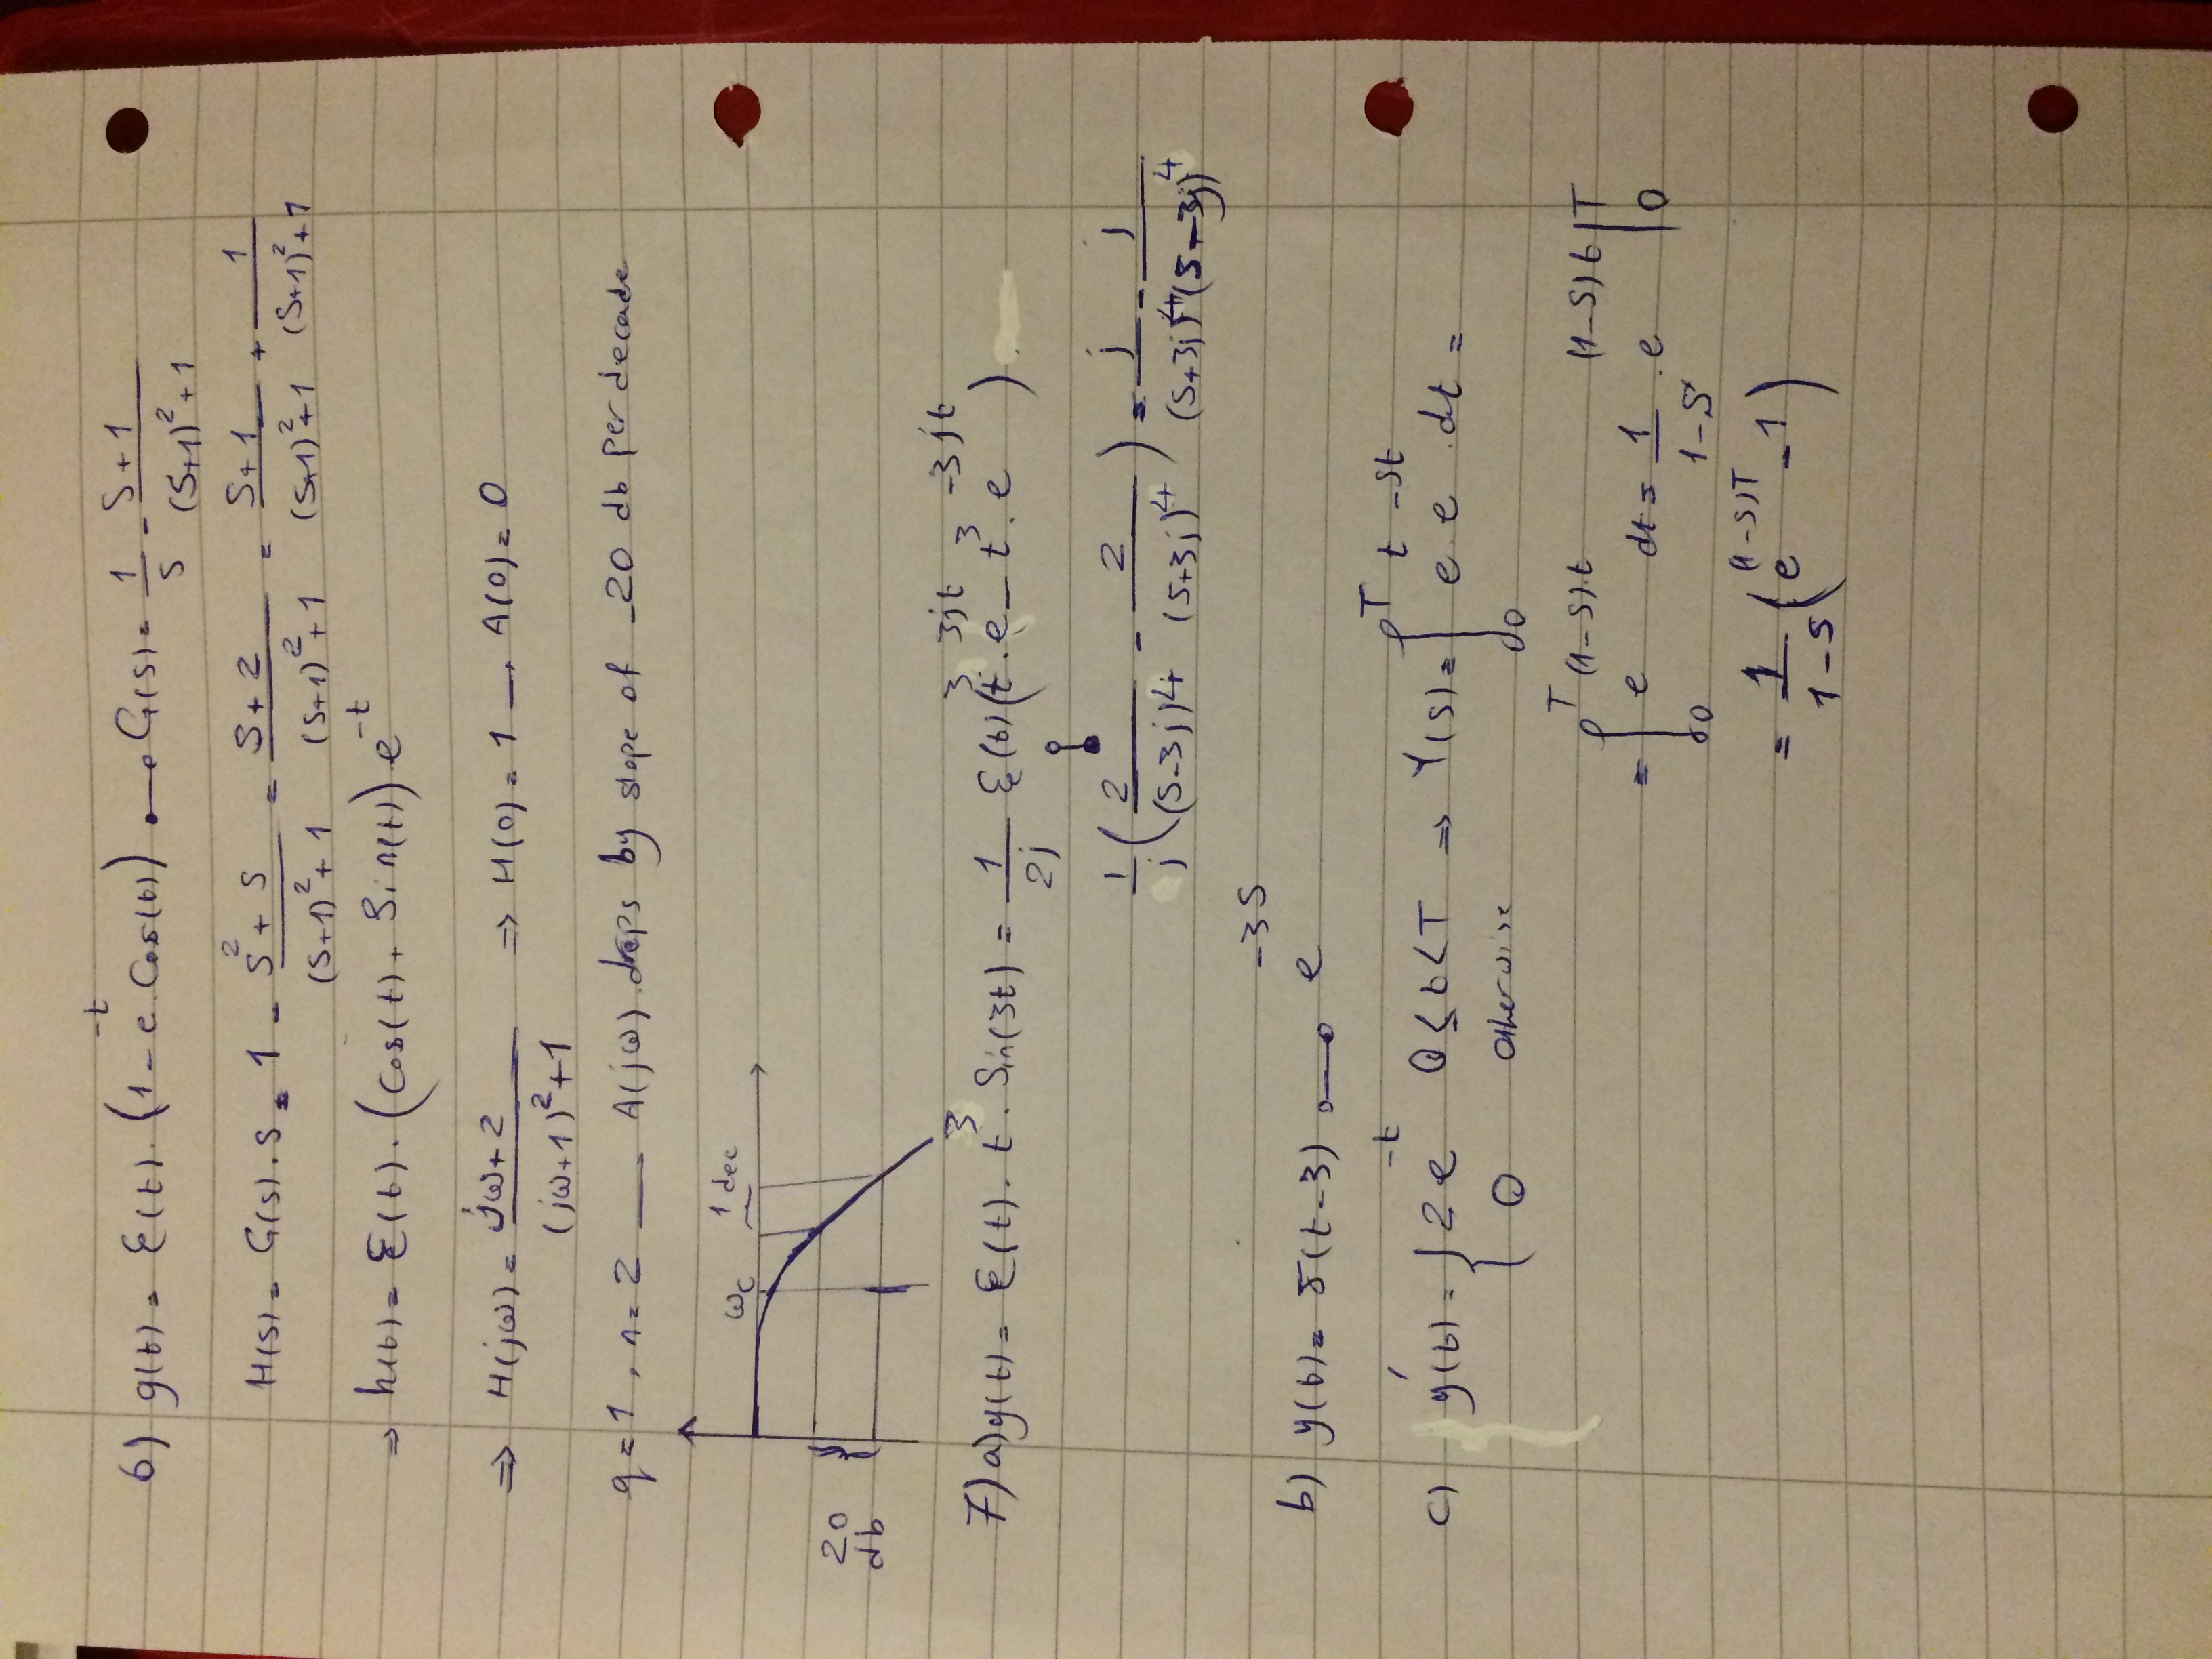 6) g(t) = ε(t) · (1 - e^{-t} Cos(t)) •—• G(s) = \frac{1}{s} - \frac{s+1}{(s+1)^2+1}
H(s) = G(s) · s = 1 - \frac{s^2+s}{(s+1)^2+1} = \frac{s+2}{(s+1)^2+1} = \frac{s+1}{(s+1)^2+1} + \frac{1}{(s+1)^2+1}
⇒ h(t) = ε(t) · (Cos(t) + Sin(t)) e^{-t}
⇒ H(jω) = \frac{jω+2}{(jω+1)^2+1} ⇒ H(0) = 1 → A(0) = 0
q = 1, n = 2 — A(jω) drops by slope of -20 db per decade
ω_c 1 dec
20
db
7) a) y(t) = ε(t) · t^3 · Sin(3t) = \frac{1}{2j} ε(t) (t^3 · e^{3jt} - t^3 · e^{-3jt})
\frac{1}{j} (\frac{2}{(s-3j)^4} - \frac{2}{(s+3j)^4}) = \frac{j}{(s+3j)^4} - \frac{j}{(s-3j)^4}
b) y(t) = δ(t-3) o—o e^{-3s}
c) y'(t) = { 2e^{-t} 0 ≤ t < T ⇒ Y(s) = ∫_0^T e^t e^{-st} · dt =
0 otherwise
= ∫_0^T e^{(1-s)·t} dt = \frac{1}{1-s} · e^{(1-s)t} |_0^T
= \frac{1}{1-s} (e^{(1-s)T} - 1)